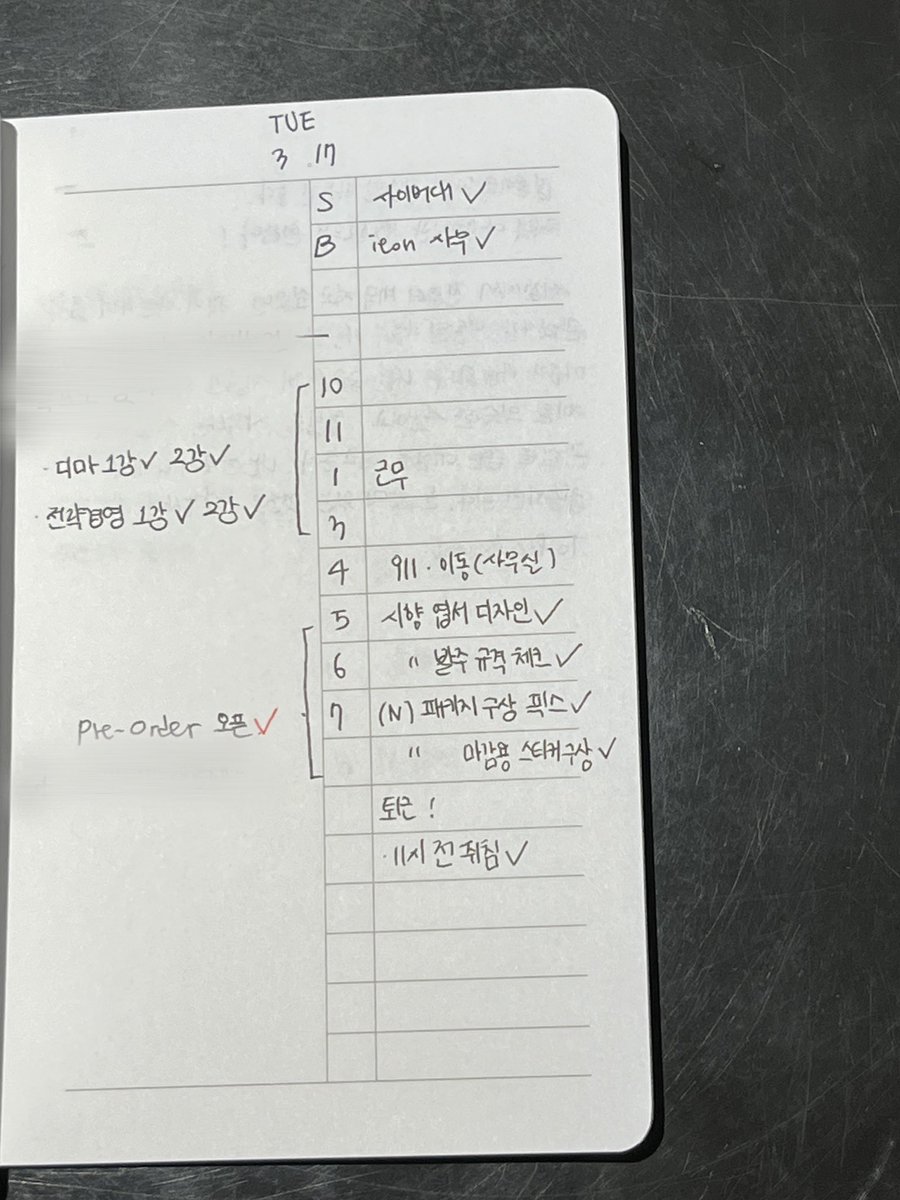 TUE
3 .17
S 사이버대 ✓
B ieon 사무 ✓
10
11
· 디마 1강 ✓ 2강 ✓
1 근무
· 전략경영 1강 ✓ 2강 ✓
3
4 911 · 이동(사무실)
5 시향 엽서 디자인 ✓
6 〃 발주 규격 체크 ✓
7 (N) 패키지 구상 픽스 ✓
Pre-order 오픈 ✓
〃 마감용 스티커 구상 ✓
퇴근 !
· 11시 전 취침 ✓